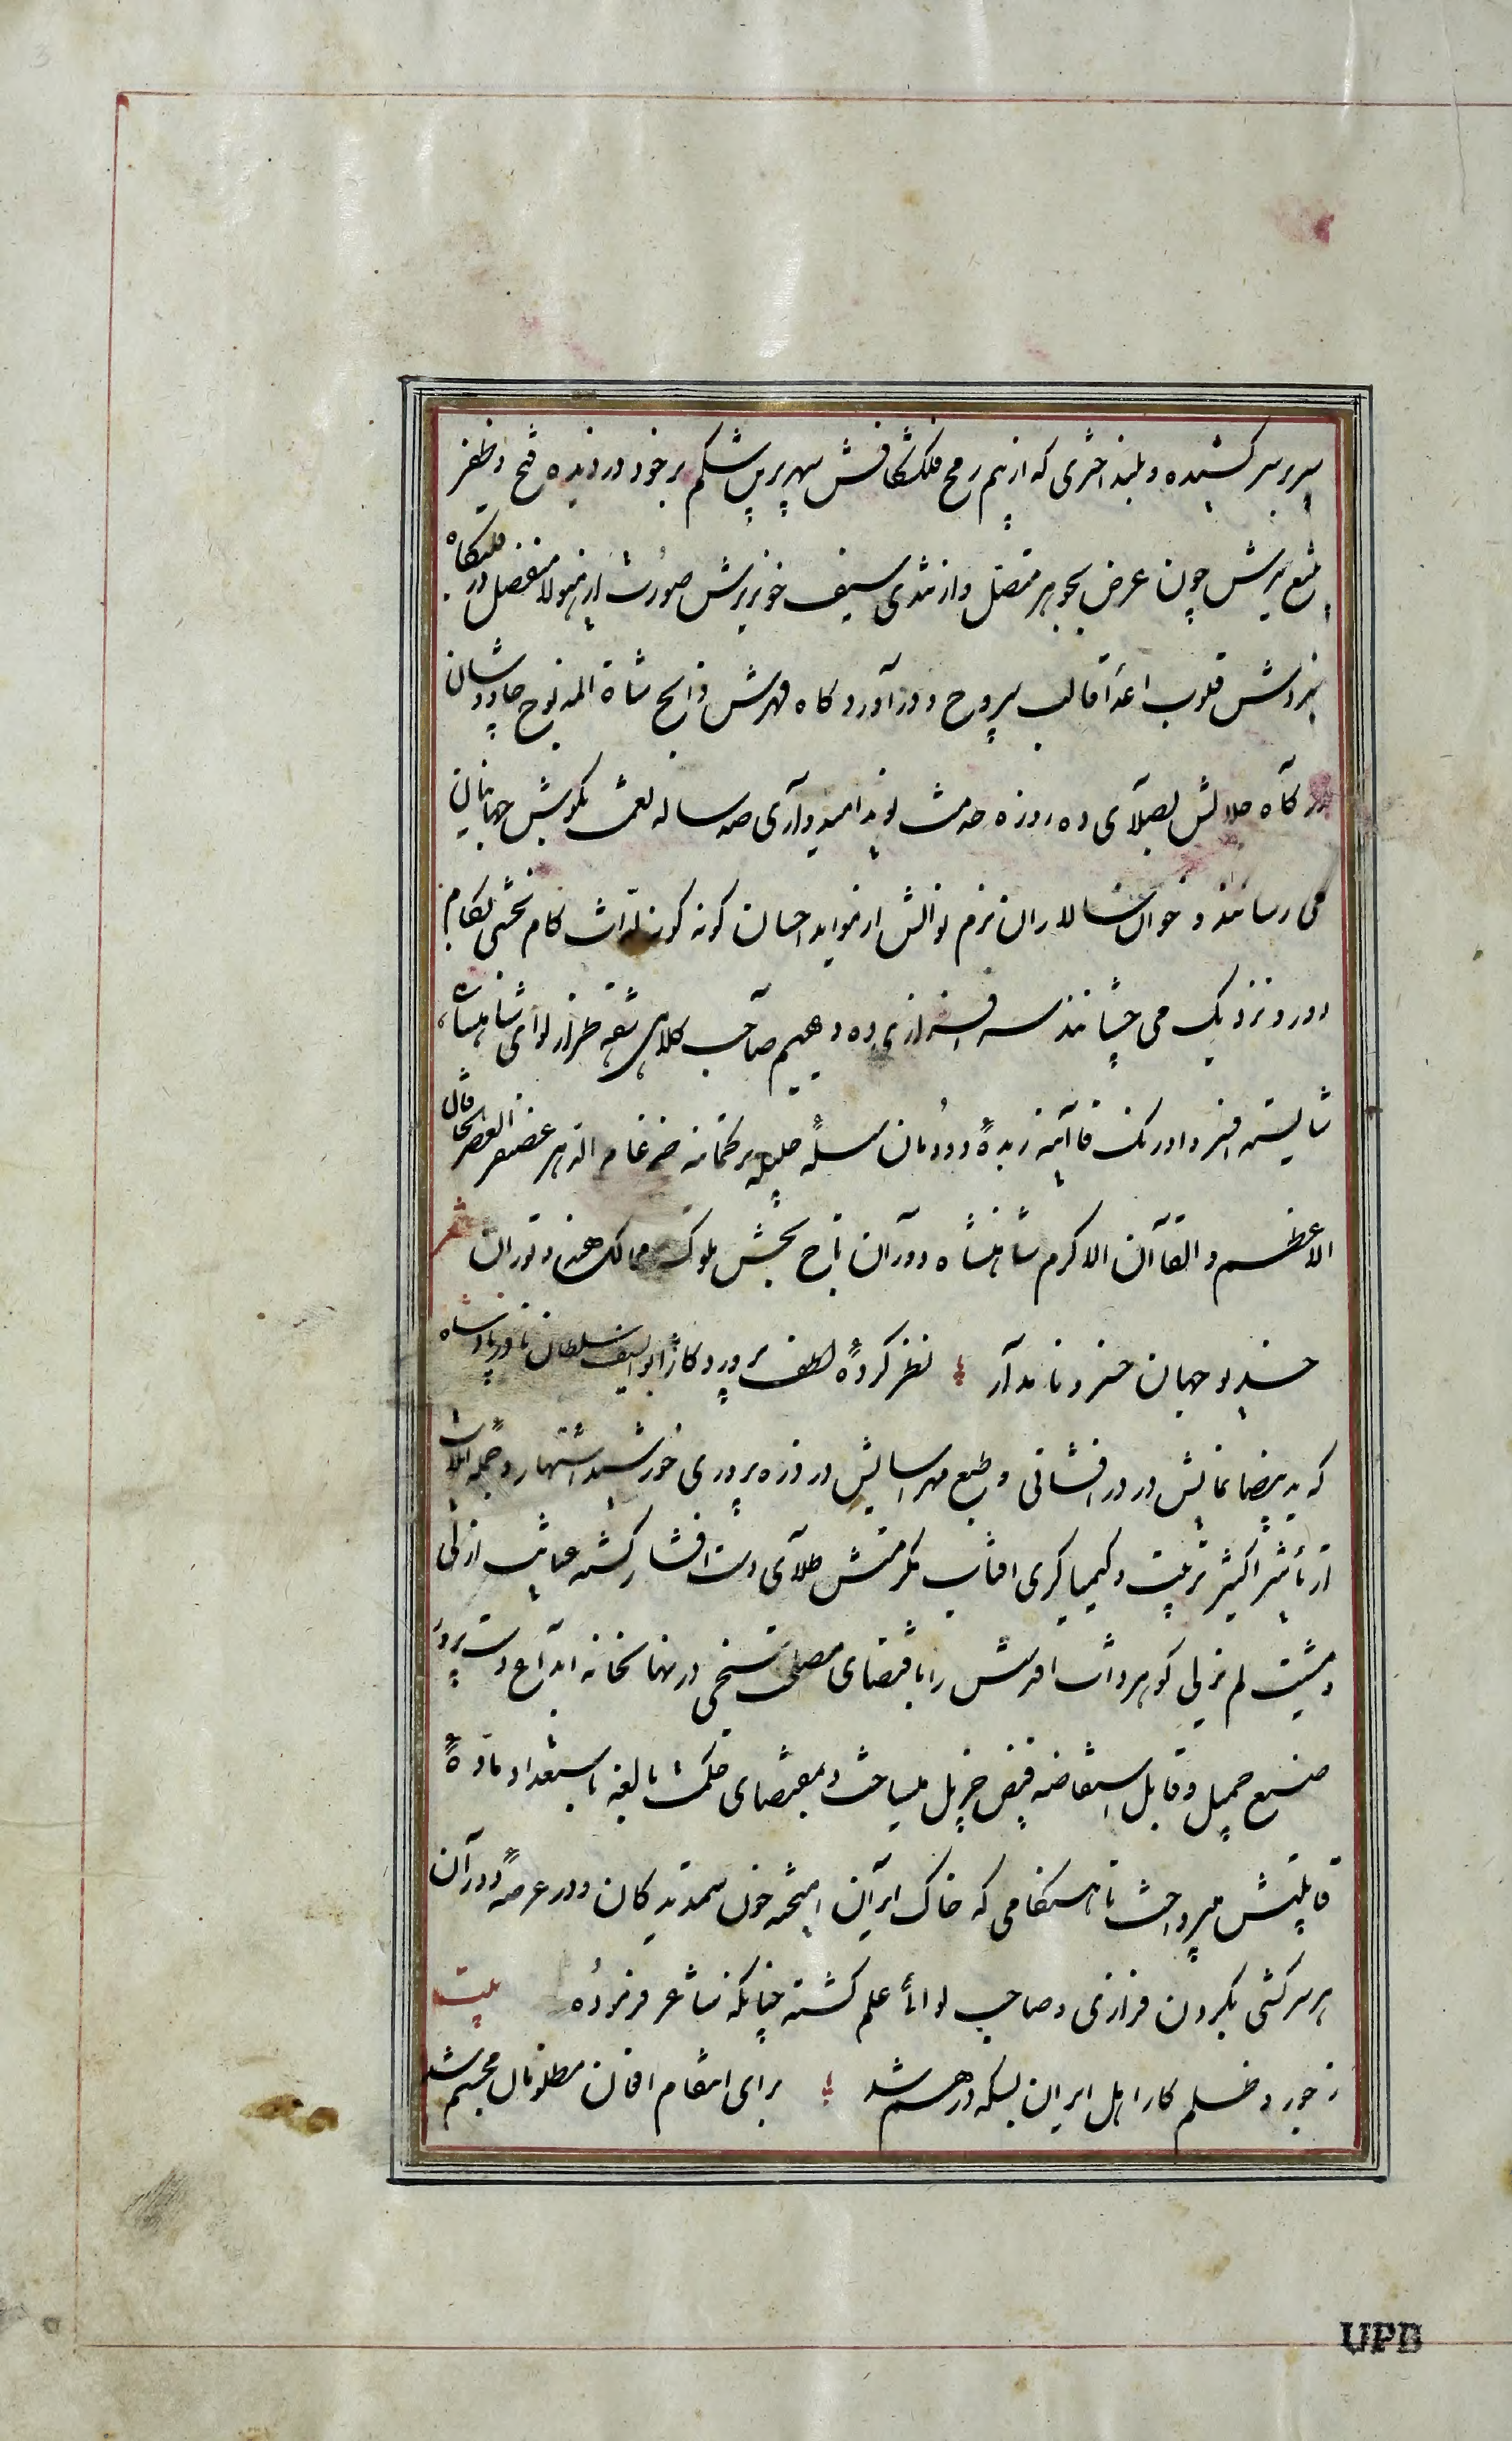 سپر بر سر کشیده و بلند اختری که از بیم رمح فلک‌شکافش سپهر پرپر شکم بر خود دزدیده فتح و ظفر
تیغ تیزش چون عرض بجوهر متصل و از تندی سیف خونریزش صورت از هیولا منفصل در هلیکاه
نبردش قلوب اعدا قالب بیروح و در آوردکاه قهرش ذابح شاة المذبوح چاوشان
درکاه جلالش بصلای ده روزه خدمت نوید امیدواری صد ساله نعمت بکوش جهانیان
می رسانند و خوان سالاران بزم نوالش از فواید احسان کونه کونه لذات کام بخشی بکام
دور و نزدیک می چشانند سرافرازی ده دیهیم صاحب کلاهی شقه طراز لوای شاهنشاهی
شایسته افسر و اورنک قاآنیه زبدهٔ دودمان سلسلهٔ جلیلهٔ ترکمانیه ضرغام الدهر غضنفر العصر خاقان
الاعظم و القاآن الاکرم شاهنشاه دوران تاج بخش ملوک ممالک هند و توران شعر
خدیو جهان خسرو نامدار نظر کردهٔ لطف پروردکار ابوالسیف سلطان نادر پادشاه
که ید بیضا نمایش در درافشانی و طبع مهر آسایش در ذره پروری خورشید اشتهار و جمله ایلات
از تأثیر اکسیر تربیت و کیمیاکری افتاب مکرمتش طلای دست افشار کشته عنایت ازلی
و مشیت لم یزلی کوهر ذات اقدسش را باقتضای مصلحتی در نهانخانه ابداع دست پرورد
صنع جمیل و قابل استفاضه فیض جزیل میساخت و بمقتضای حکمت بالغه باستعداد مادهٔ
قابلیتش میپرداخت تا هنکامی که خاک ایران امیخته خون ستمدیدکان و در عرصهٔ دوران
هر سرکشی بکردون فرازی و صاحب لوائی علم کشته چنانکه شاعر فرموده بیت
ز جور و ظلم کار اهل ایران بسکه درهم شد برای انتقام افغان مظلومان مجسم شد
UPB